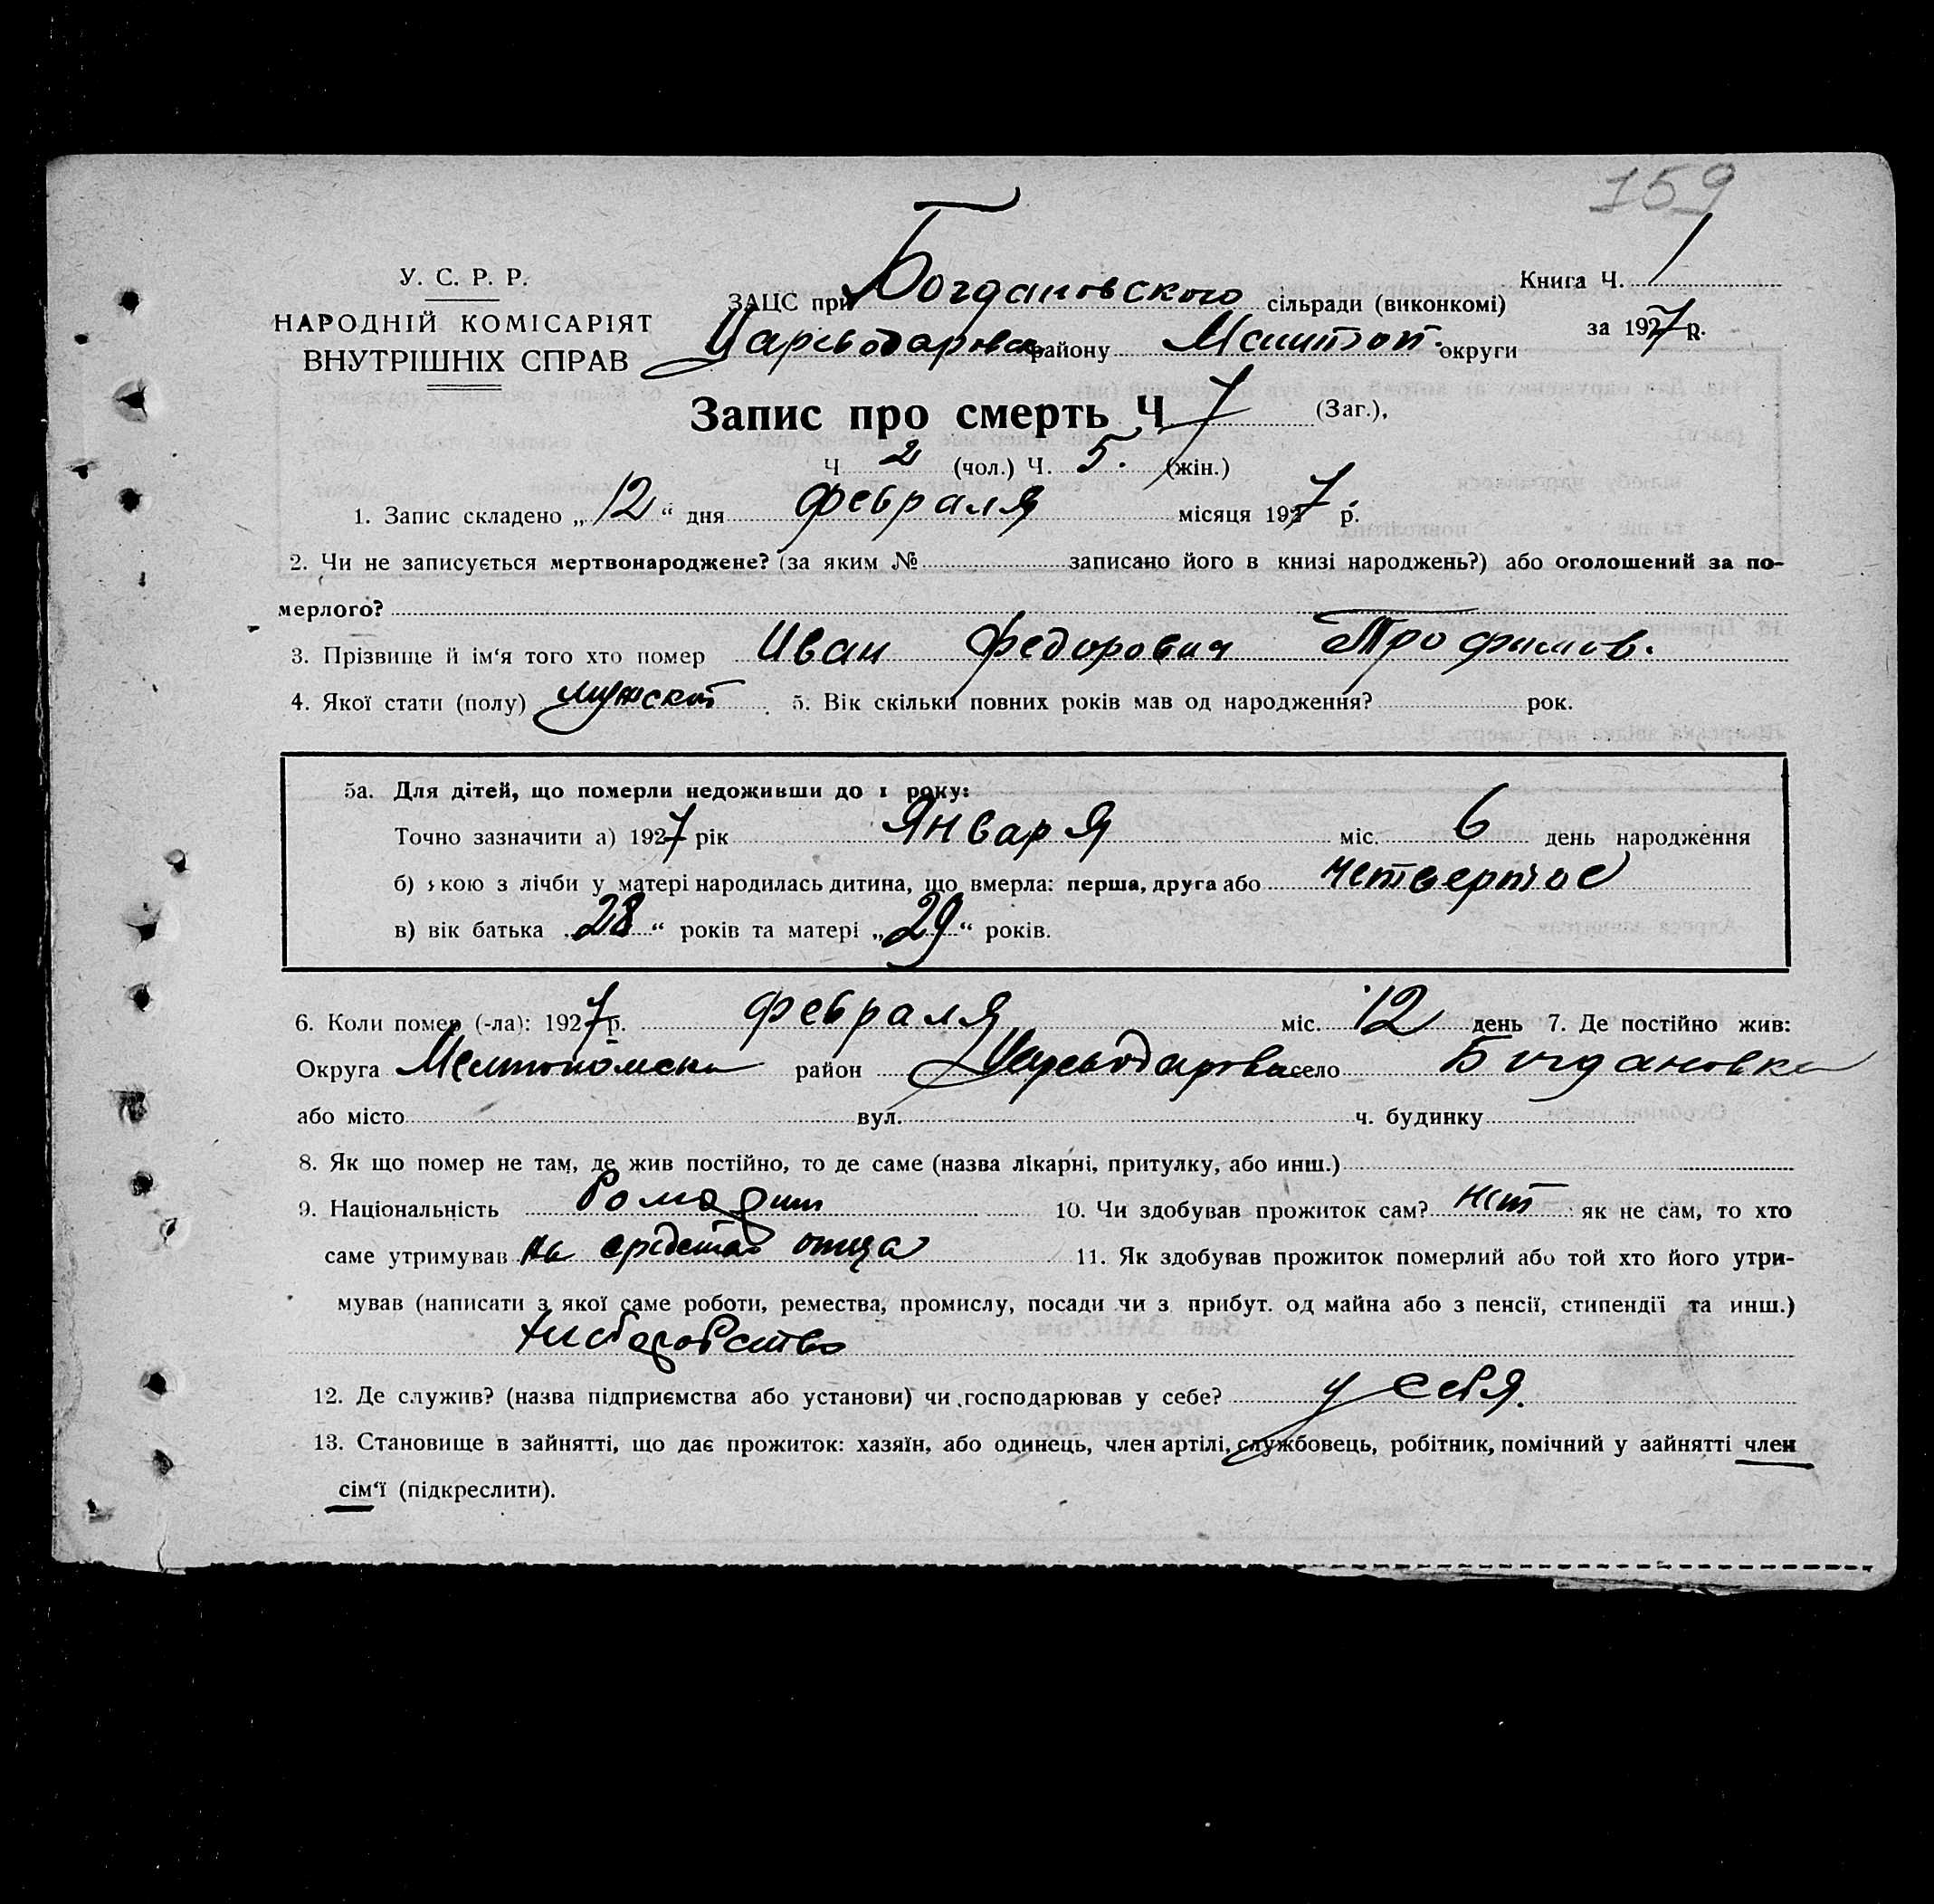 159
У. С. Р. Р.
НАРОДНІЙ КОМІСАРІЯТ
ВНУТРІШНІХ СПРАВ
ЗАЦС при Богдановского сільради (виконкомі)
Книга Ч. 1
району Мелитоп. округи
за 1927 р.
Запис про смерть Ч 7 (Заг.),
Ч 2 (чол.) Ч. 5. (жін.)
1. Запис складено „12“ дня февраля місяця 1927 р.
2. Чи не записується мертвонароджене? (за яким № записано його в книзі народжень?) або оголошений за по-
мерлого?
3. Прізвище й ім‘я того хто помер Иван Федорович Трофимов.
4. Якої стати (полу) мужской 5. Вік скільки повних років мав од народження? рок.
5а. Для дітей, що померли недоживши до 1 року:
Точно зазначити а) 1927 рік Января міс. 6 день народження
б) якою з лічби у матері народилась дитина, що вмерла: перша, друга або четвертое
в) вік батька „28“ років та матері „29“ років.
6. Коли помер (-ла): 1927 р. февраля міс. 12 день 7. Де постійно жив:
Округа район село Богдановка
або місто вул. ч. будинку
8. Як що помер не там, де жив постійно, то де саме (назва лікарні, притулку, або инш.)
9. Національність 10. Чи здобував прожиток сам? нет як не сам, то хто
саме утримував на средства отца 11. Як здобував прожиток померлий або той хто його утри-
мував (написати з якої саме роботи, ремества, промислу, посади чи з прибут. од майна або з пенсії, стипендії та инш.)
хлеборобство
12. Де служив? (назва підприємства або установи) чи господарював у себе? у себя.
13. Становище в зайнятті, що дає прожиток: хазяїн, або одинець, член артілі, службовець, робітник, помічний у зайнятті член
сім‘ї (підкреслити).